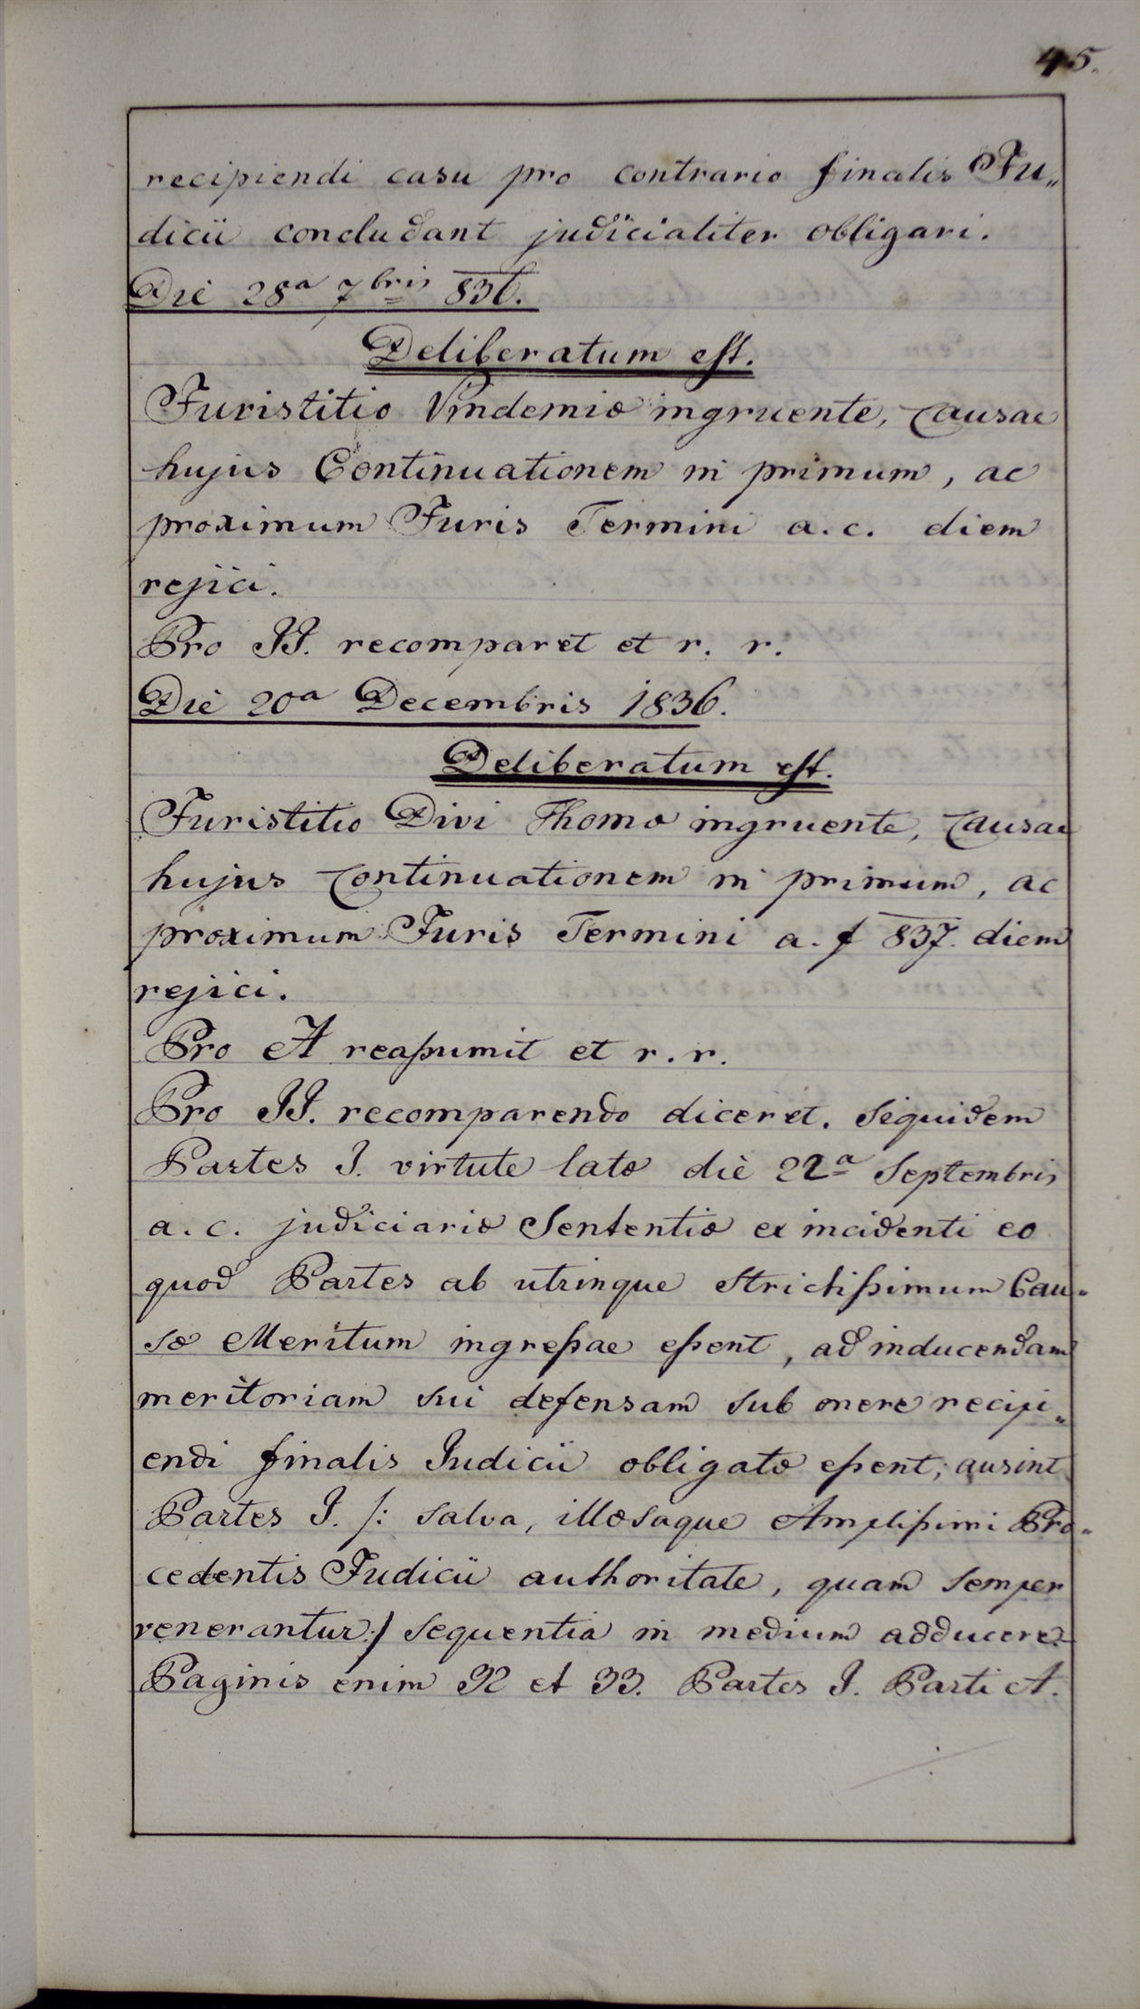 45.
recipiendi casu pro contrario finalis Ju„
dicii concludant judicialiter obligari.
Diè 28a 7bris 836.
Deliberatum est.
Juristitio Vindemiæ ingruente, Causae
hujus Continuationem in primum, ac
proximum Juris Termini a. c. diem
rejici.
Pro JJ. recomparet et r. r.
Diè 20a Decembris 1836.
Deliberatum est.
Juristitio Divi Thomæ ingruente, Causae
hujus Continuationem in primum, ac
proximum Juris Termini a. f 837. diem
rejici.
Pro A reassumit et r. r.
Pro JJ. recomparendo diceret. Siquidem
Partes J. virtute latæ diè 22a Septembris
a. c. judiciariæ Sententiæ ex incidenti eo
quod Partes ab utrinque strictissimum Cau-
sæ Meritum ingressae essent, ad inducendam
meritoriam sui defensam sub onere recipi„
endi finalis Judicii obligatæ essent; ausint
Partes J. /: salva, illæsaque Amplissimi Pro-
cedentis Judicii authoritate, quam semper
venerantur :/ sequentia in medium adducere:
Paginis enim 32 et 33. Partes J. Parti A.